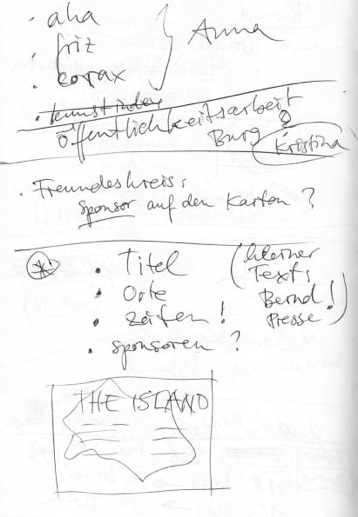 · aha
· friz
· corax } Anna
Öffentlichkeitsarbeit
Burg ? Kristina
· Freundeskreis:
sponsor auf den Karten ?
• Titel
• Orte
• Zeiten !
• sponsoren ?
(kleiner
Text,
Bernd !
Presse)
THE ISLAND